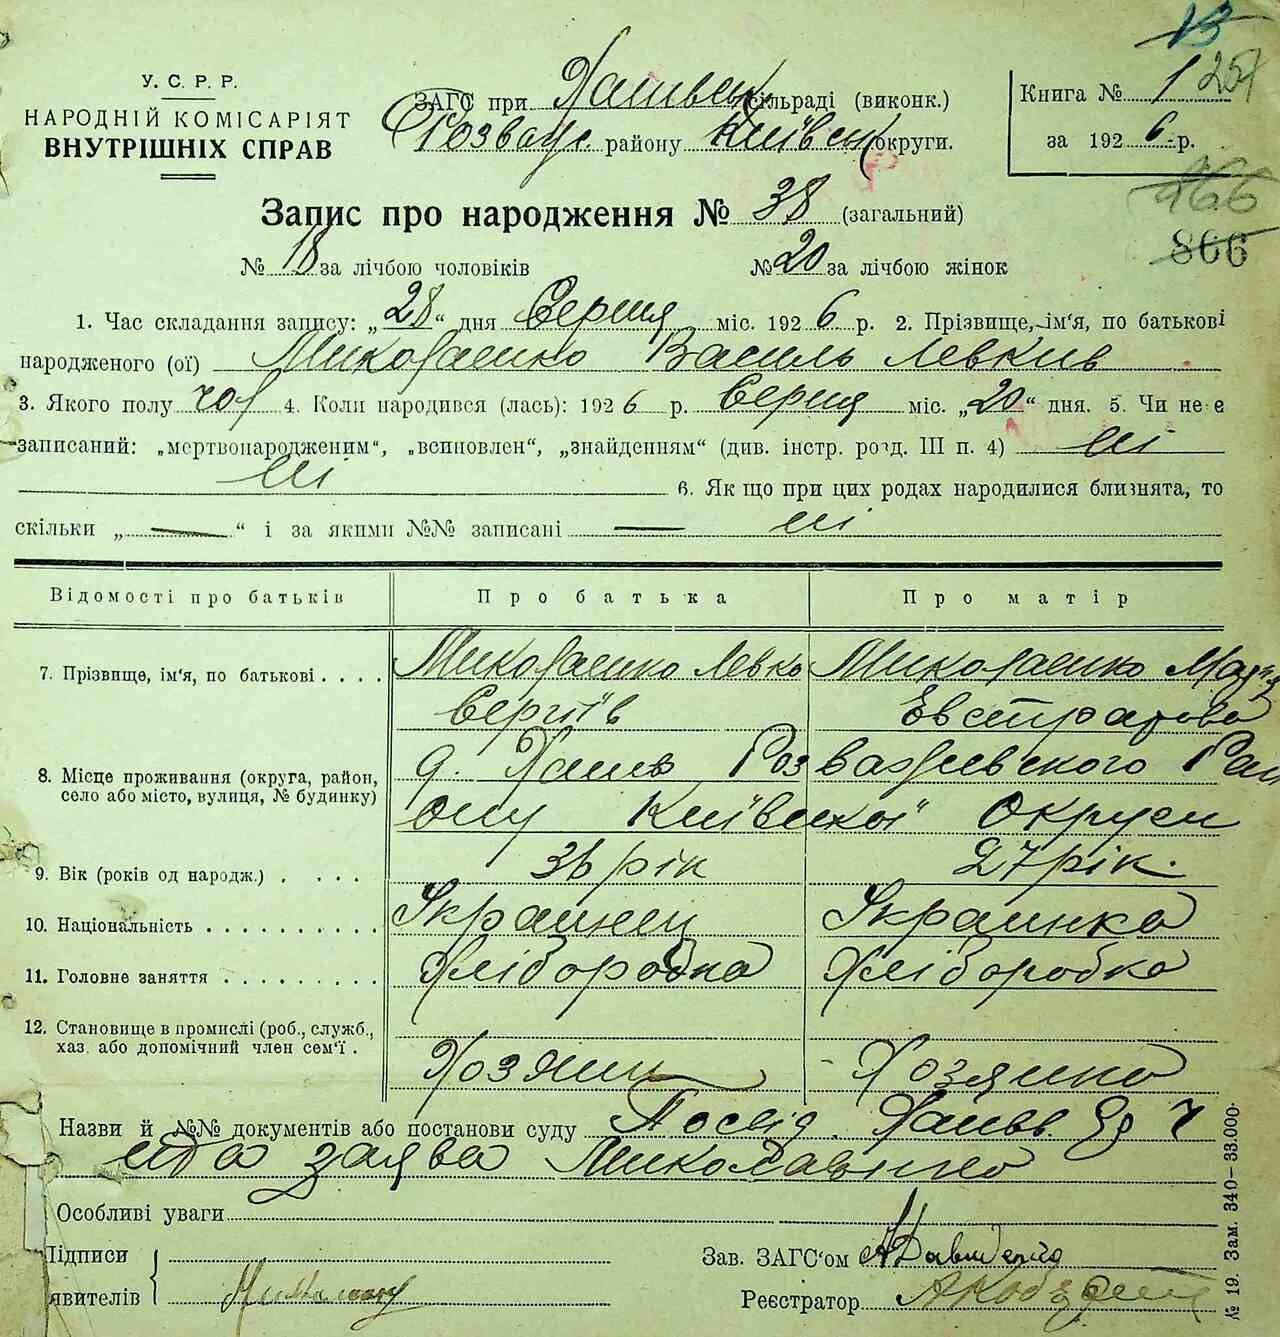 13
257
У. С. Р. Р.
НАРОДНІЙ КОМІСАРІЯТ
ВНУТРІШНІХ СПРАВ
ЗАГС при сільраді (виконк.)
району Київськ округи.
Книга № 1
за 1926 р.
266
866
Запис про народження № 38 (загальний)
№ 18 за лічбою чоловіків № 20 за лічбою жінок
1. Час складання запису: „28“ дня Серпня міс. 1926 р. 2. Прізвище, ім‘я, по батькові
народженого (ої) Миколаенко Василь Левків
3. Якого полу чол 4. Коли народився (лась): 1926 р. Серпня міс. „20“ дня. 5. Чи не є
записаний: „мертвонародженим“, „всиновлен“, „знайденням“ (див. інстр. розд. III п. 4) ні
ні 6. Як що при цих родах народилися близнята, то
скільки „—“ і за якими №№ записані — ні
Відомості про батьків Про батька Про матір
7. Прізвище, ім‘я, по батькові . . . . Миколаенко Левко Миколаенко
Сергіїв Евстратова
8. Місце проживання (округа, район,
село або місто, вулиця, № будинку)
Розважевского Рай
ону Київскої Округи
9. Вік (років од народж.) . . . . 36 рік 27 рік.
10. Національність . . . . . . . . . . Украинец Украинка
11. Головне заняття . . . . . . . . . Хлібородна Хліборобка
12. Становище в промислі (роб., служб.,
хаз. або допомічний член сем‘ї .
Хозяин Хозяика
Назви й №№ документів або постанови суду Посвід.
заява
Особливі уваги
Підписи
явителів
Зав. ЗАГС‘ом
Реєстратор
№ 19. Зам. 340—33.000.